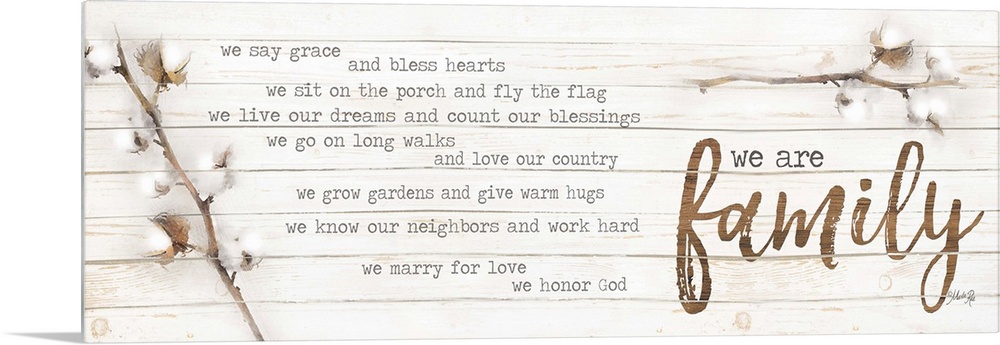 we say grace
and bless hearts
we sit on the porch and fly the flag
we live our dreams and count our blessings
we go on long walks
and love our country
we grow gardens and give warm hugs
we know our neighbors and work hard
we marry for love
we honor God
we are
family
Marla Rae